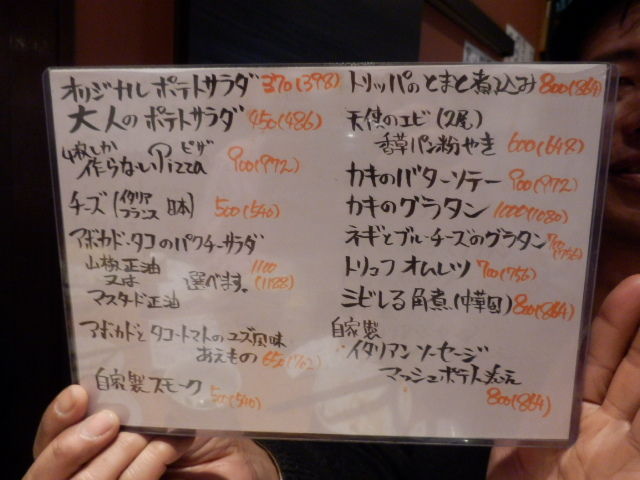 オリジナルポテトサラダ 370(398)
大人のポテトサラダ 450(486)
4枚しか ピザ
作らないPizza 900(972)
チーズ(イタリア フランス 日本) 500(540)
アボカド・タコのパクチーサラダ
山椒正油 1100
又は 選べます。 (1188)
マスタード正油
アボカドとタコ・トマトのユズ風味
あえもの 650(702)
自家製スモーク 500(540)
トリッパのとまと煮込み 800(864)
天使のエビ(2尾)
香草パン粉やき 600(648)
カキのバターソテー 900(972)
カキのグラタン 1000(1080)
ネギとブルーチーズのグラタン 700(756)
トリュフ オムレツ 700(756)
ミビしる角煮(中華風) 800(864)
自家製
イタリアンソーセージ
マッシュポテト添え
800(864)